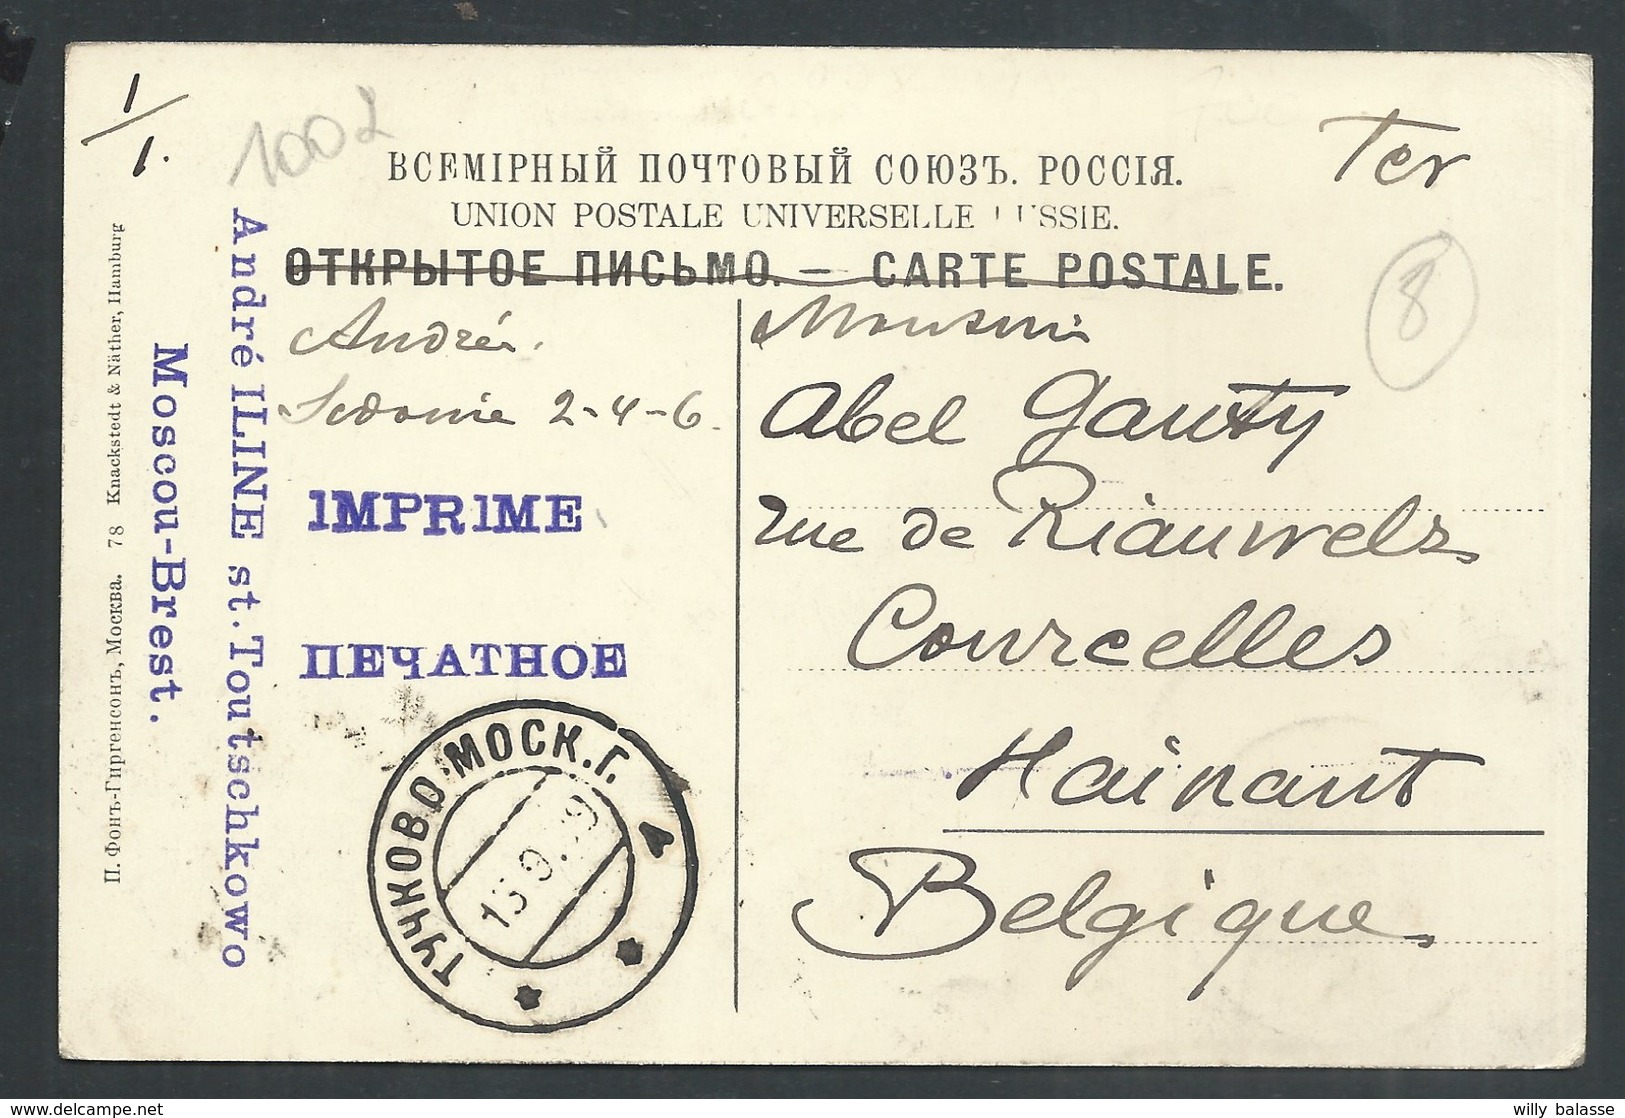 1/1.
1002
Ter
ВСЕМІРНЫЙ ПОЧТОВЫЙ СОЮЗЪ. РОССІЯ.
UNION POSTALE UNIVERSELLE RUSSIE.
ОТКРЫТОЕ ПИСЬМО. — CARTE POSTALE.
8
André
2-4-6
IMPRIME
ПЕЧАТНОЕ
ТУЧКОВО МОСК. Г.
André ILINE st. Toutschkowo
Moscou-Brest.
П. Фонъ-Гиргенсонъ, Москва. 78 Knackstedt & Näther, Hamburg
Abel Gauty
rue de Riauwelz
Courcelles
Hainaut
Belgique
willy balasse